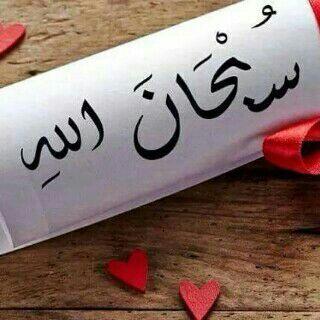 سُبْحَانَ اللهِ